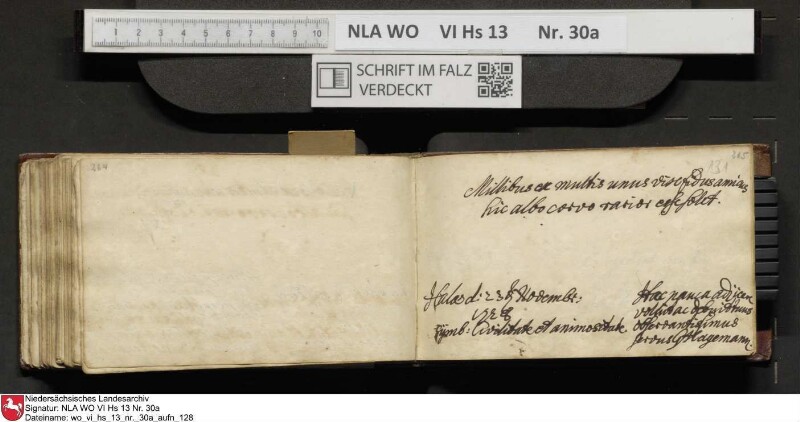 1 2 3 4 5 6 7 8 9 10
NLA WO VI Hs 13 Nr. 30a
SCHRIFT IM FALZ
VERDECKT
264
265
131
Millibus ex multis unus vix fidus amicus
hic albo corvo rarior esse solet.
d: 23 Novembr:
Symb: Civilitate et animositate.
Haec pauca adijcere
voluit ac debuit tuus
observantissimus
servus Hagemann.
Niedersächsisches Landesarchiv
Signatur: NLA WO VI Hs 13 Nr. 30a
Dateiname: wo_vi_hs_13_nr._30a_aufn_128